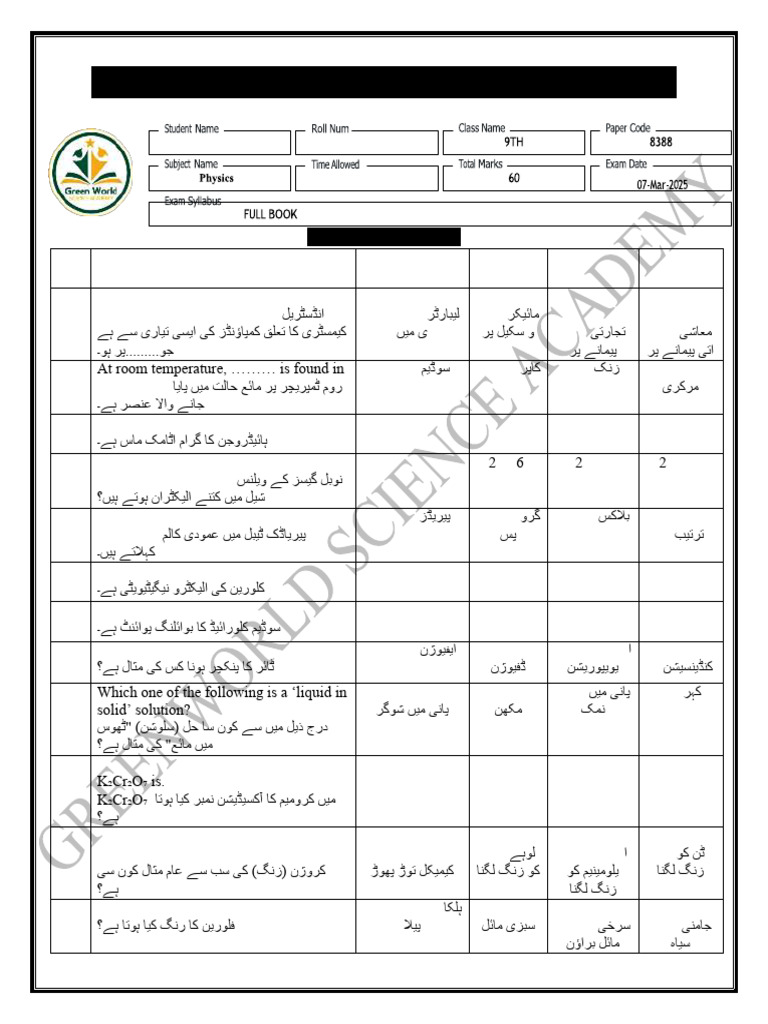 Student Name
Roll Num
Class Name
9TH
Paper Code
8388
Green World
Subject Name
Physics
Time Allowed
Total Marks
60
Exam Date
07-Mar-2025
Exam Syllabus
FULL BOOK
انڈسٹریل
کیمسٹری کا تعلق کمپاؤنڈز کی ایسی تیاری سے ہے
جو.........پر ہو۔
لیبارٹر
ی میں
مائیکر
و سکیل پر
تجارتی
پیمانے پر
معاشی
اتی پیمانے پر
At room temperature, ……… is found in
روم ٹمپریچر پر مائع حالت میں پایا
جانے والا عنصر ہے۔
سوڈیم
کاپر
زنک
مرکری
ہائیڈروجن کا گرام اٹامک ماس ہے۔
نوبل گیسز کے ویلنس
شیل میں کتنے الیکٹران ہوتے ہیں؟
2 6
2
2
پیریاڈک ٹیبل میں عمودی کالم
کہلاتے ہیں۔
پیریڈز
گرو
پس
بلاکس
ترتیب
کلورین کی الیکٹرو نیگیٹیویٹی ہے۔
سوڈیم کلورائیڈ کا بوائلنگ پوائنٹ ہے۔
ٹائر کا پنکچر ہونا کس کی مثال ہے؟
ایفیوژن
ڈفیوژن
ا
یوپیوریشن
کنڈینسیشن
Which one of the following is a ‘liquid in
solid’ solution?
درج ذیل میں سے کون سا حل (سلوشن) "ٹھوس
میں مائع" کی مثال ہے؟
پانی میں شوگر
مکھن
پانی میں
نمک
کہر
K₂Cr₂O₇ is.
K₂Cr₂O₇ میں کرومیم کا آکسیڈیشن نمبر کیا ہوتا
ہے؟
کروژن (زنگ) کی سب سے عام مثال کون سی
ہے؟
کیمیکل توڑ پھوڑ
لوہے
کو زنگ لگنا
ا
یلومینیم کو
زنگ لگنا
ٹن کو
زنگ لگنا
فلورین کا رنگ کیا ہوتا ہے؟
ہلکا
پیلا
سبزی مائل
سرخی
مائل براؤن
جامنی
سیاہ
GREENWORLD SCIENCE ACADEMY